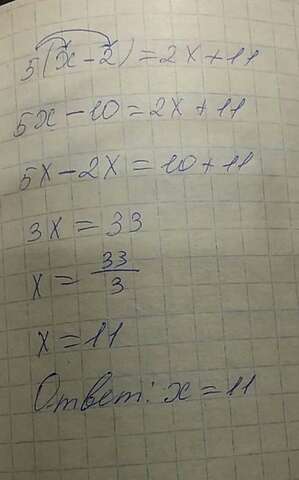 5(x-2)=2x+11
5x-10=2x+11
5x-2x=10+11
3x=33
x=33/3
x=11
Ответ: x=11